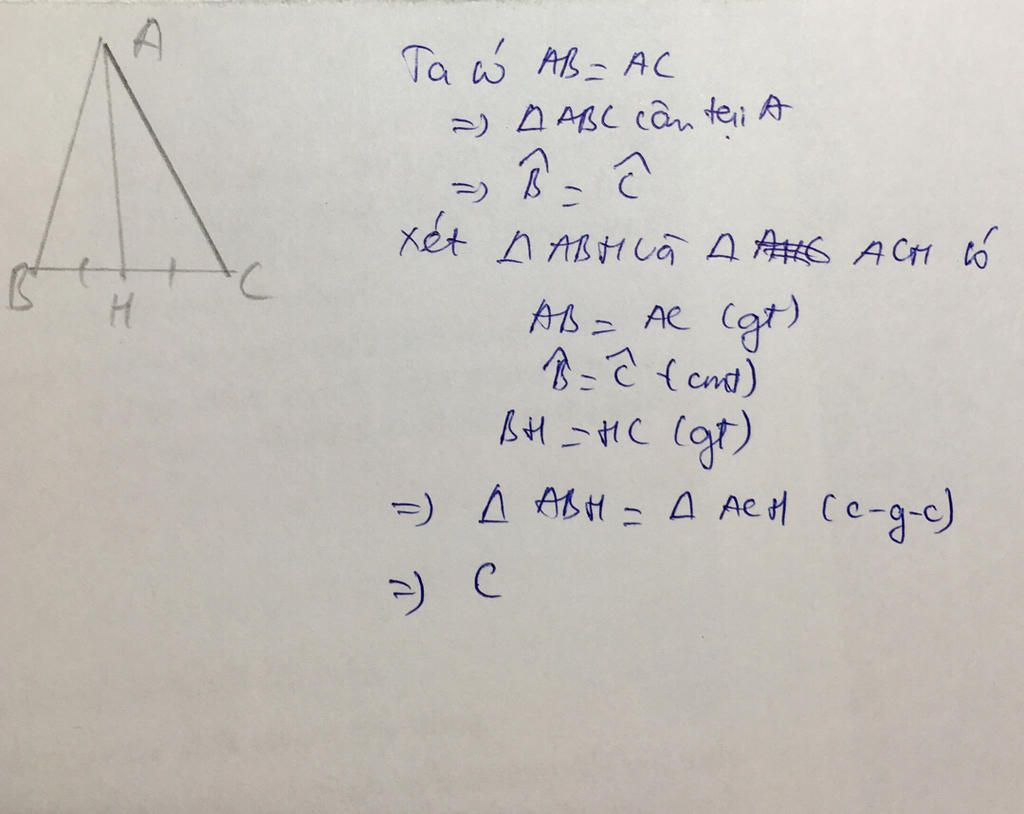 A
B
H
C
Ta có AB = AC
=> Δ ABC cân tại A
=> B̂ = Ĉ
Xét Δ ABH và Δ ACH có
AB = AC (gt)
B̂ = Ĉ (cmt)
BH = HC (gt)
=> Δ ABH = Δ ACH (c-g-c)
=> C